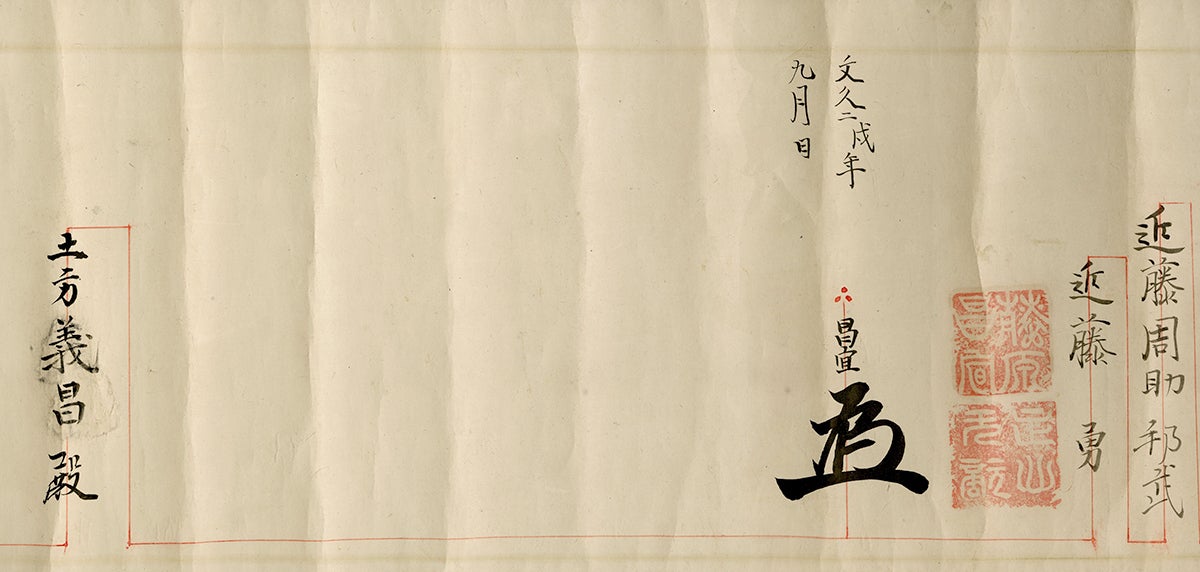 近藤周助邦武
近藤 勇
文久二戌年
昌宜
九月 日
土方義昌殿